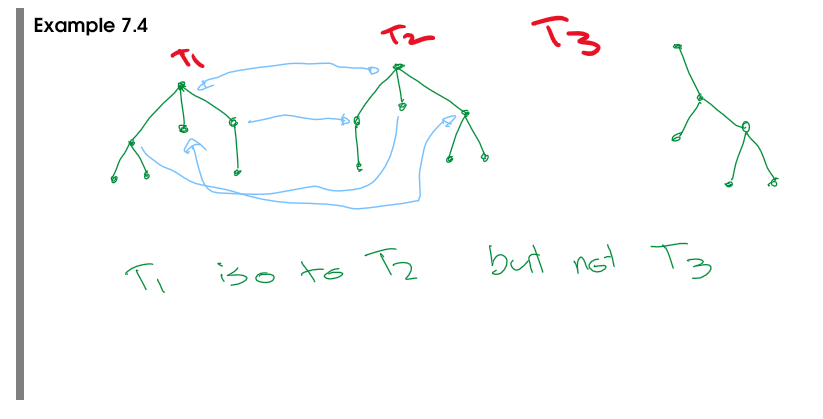 Example 7.4
T1 T2 T3
T1 iso to T2 but not T3